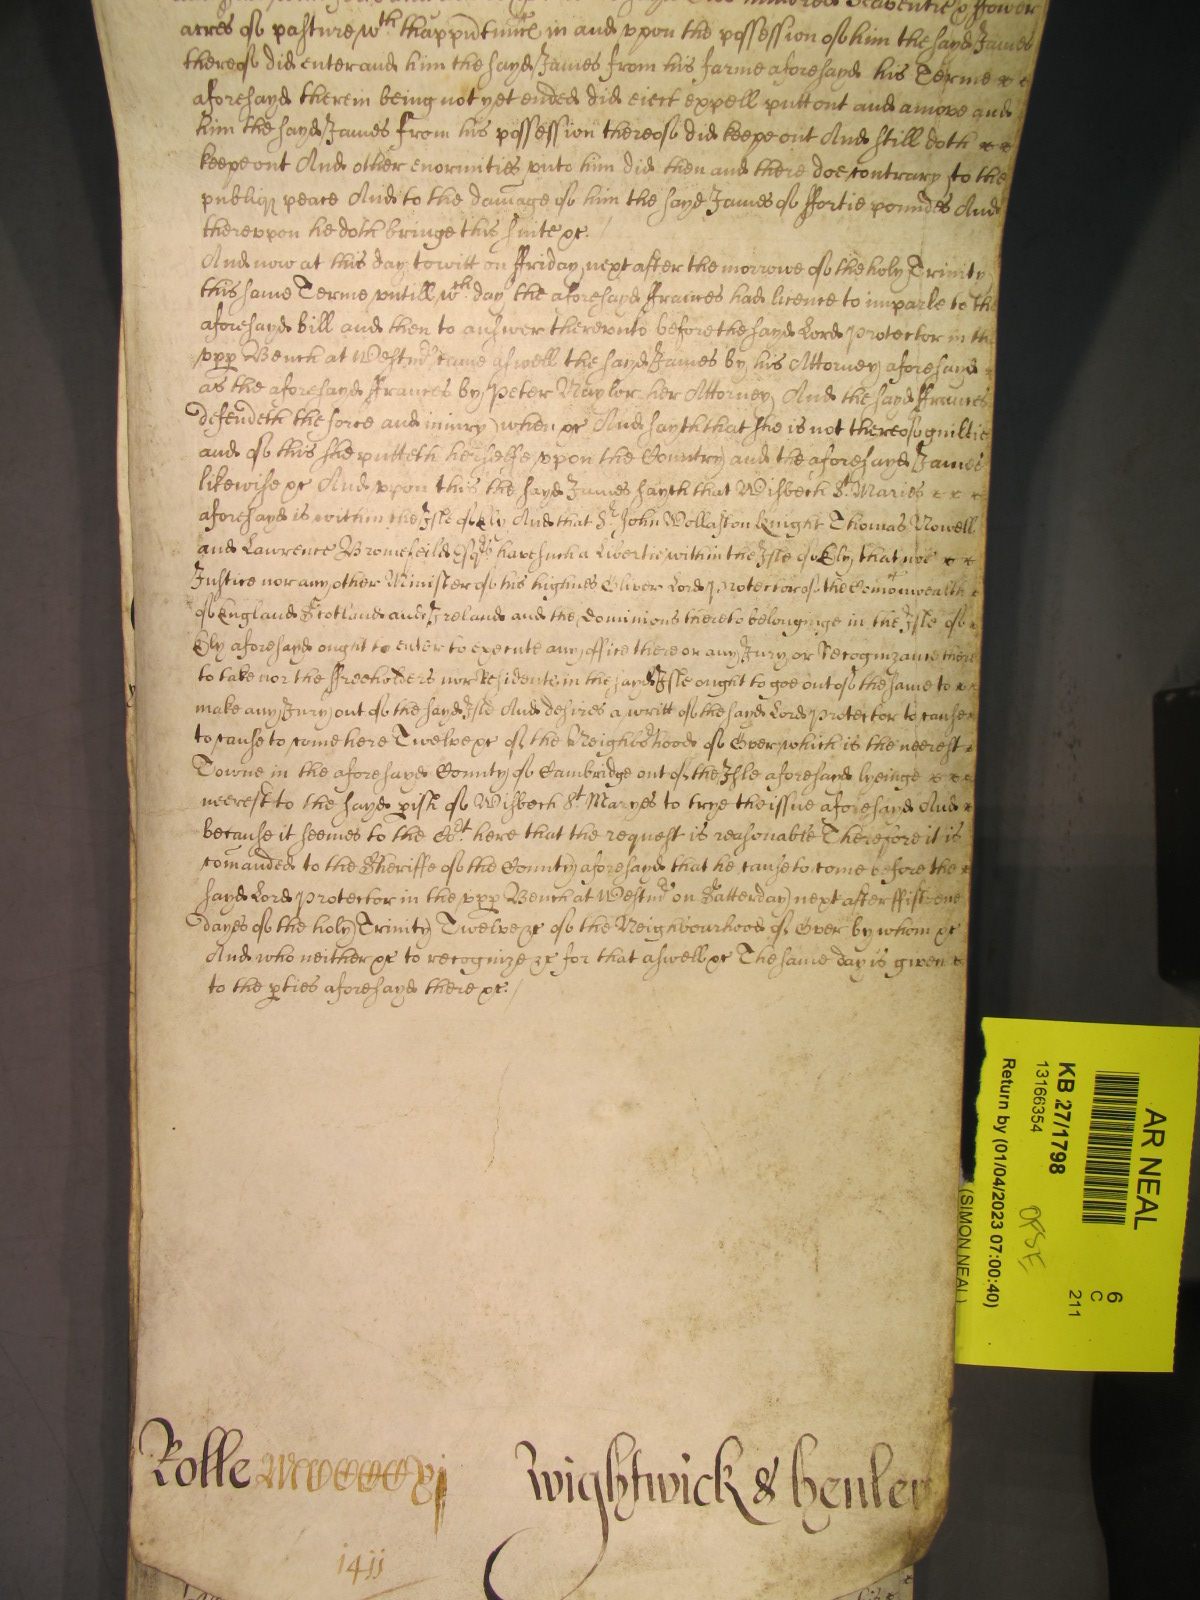 hundred Seaventie & ffower
acres of pasture wth thappurtnnces in and vpon the possession of him the sayd James
thereof did enter and him the sayd James from his farme aforesayd his Terme
aforesayd therein being not yet ended did eiect expell putt out and amove and
him the sayd James from his possession thereof did keepe out And still doth
keepe out And other enormities vnto him did then and there doe contrary to the
publiq peace And to the damage of him the sayd James of ffortie poundes And
therevpon he doth bringe this suite &c.
And now at this day to witt on ffriday next after the morrowe of the holy Trinity
this same Terme vntill wch day the aforesayd ffrances had licence to imparle to the
aforesayd bill and then to answer therevnto before the sayd Lord Protector in the
vpp Bench at Westmr came aswell the sayd James by his Attorney aforesayd
as the aforesayd ffrances by Peter Naylor her Attorney And the sayd ffrances
defendeth the force and iniury when &c And sayth that she is not thereof guiltie
and of this she putteth herselfe vpon the Country and the aforesayd James
likewise &c And vpon this the sayd James sayth that Wisbech St. Maries
aforesayd is within the Isle of Ely And that Sr. John Wollaston Knight Thomas Nowell
and Lawrence Bromefeild Esqrs have such a Libertie within the Isle of Ely that noe
Justice nor any other Minister of his highnes Oliver Lord Protector of the Comonwealth
of England Scotland and Ireland and the Dominions thereto belonginge in the Isle of
Ely aforesayd ought to enter to execute any office there or any Jury or Recognizance there
to take nor the ffreeholders nor Residents in the sayd Isle ought to goe out of the same to
make any Jury out of the sayd Isle And desires a writt of the sayd Lord Protector to cause
to cause to come here Twelve &c of the Neighbrhood of Over which is the neerest
Towne in the aforesayd County of Cambridge out of the Isle aforesayd lyeinge
neerest to the sayd pish of Wisbech St Maryes to trye the issue aforesayd And
because it seemes to the Cort here that the request is reasonable Therefore it is
comanded to the Sheriffe of the County aforesayd that he cause to come before the
sayd Lord Protector in the vpp Bench at Westmr on Satterday next after ffifteene
dayes of the holy Trinity Twelve &c of the Neighbourhood of Over by whom &c
And who neither &c to recognize &c for that aswell &c The same day is given
to the pties aforesayd there &c.
Rolle MCCCCXI Wightwick & henley
1411
AR NEAL
KB 27/1798
13166354
Return by (01/04/2023 07:00:40)
(SIMON NEAL)
6
C
211